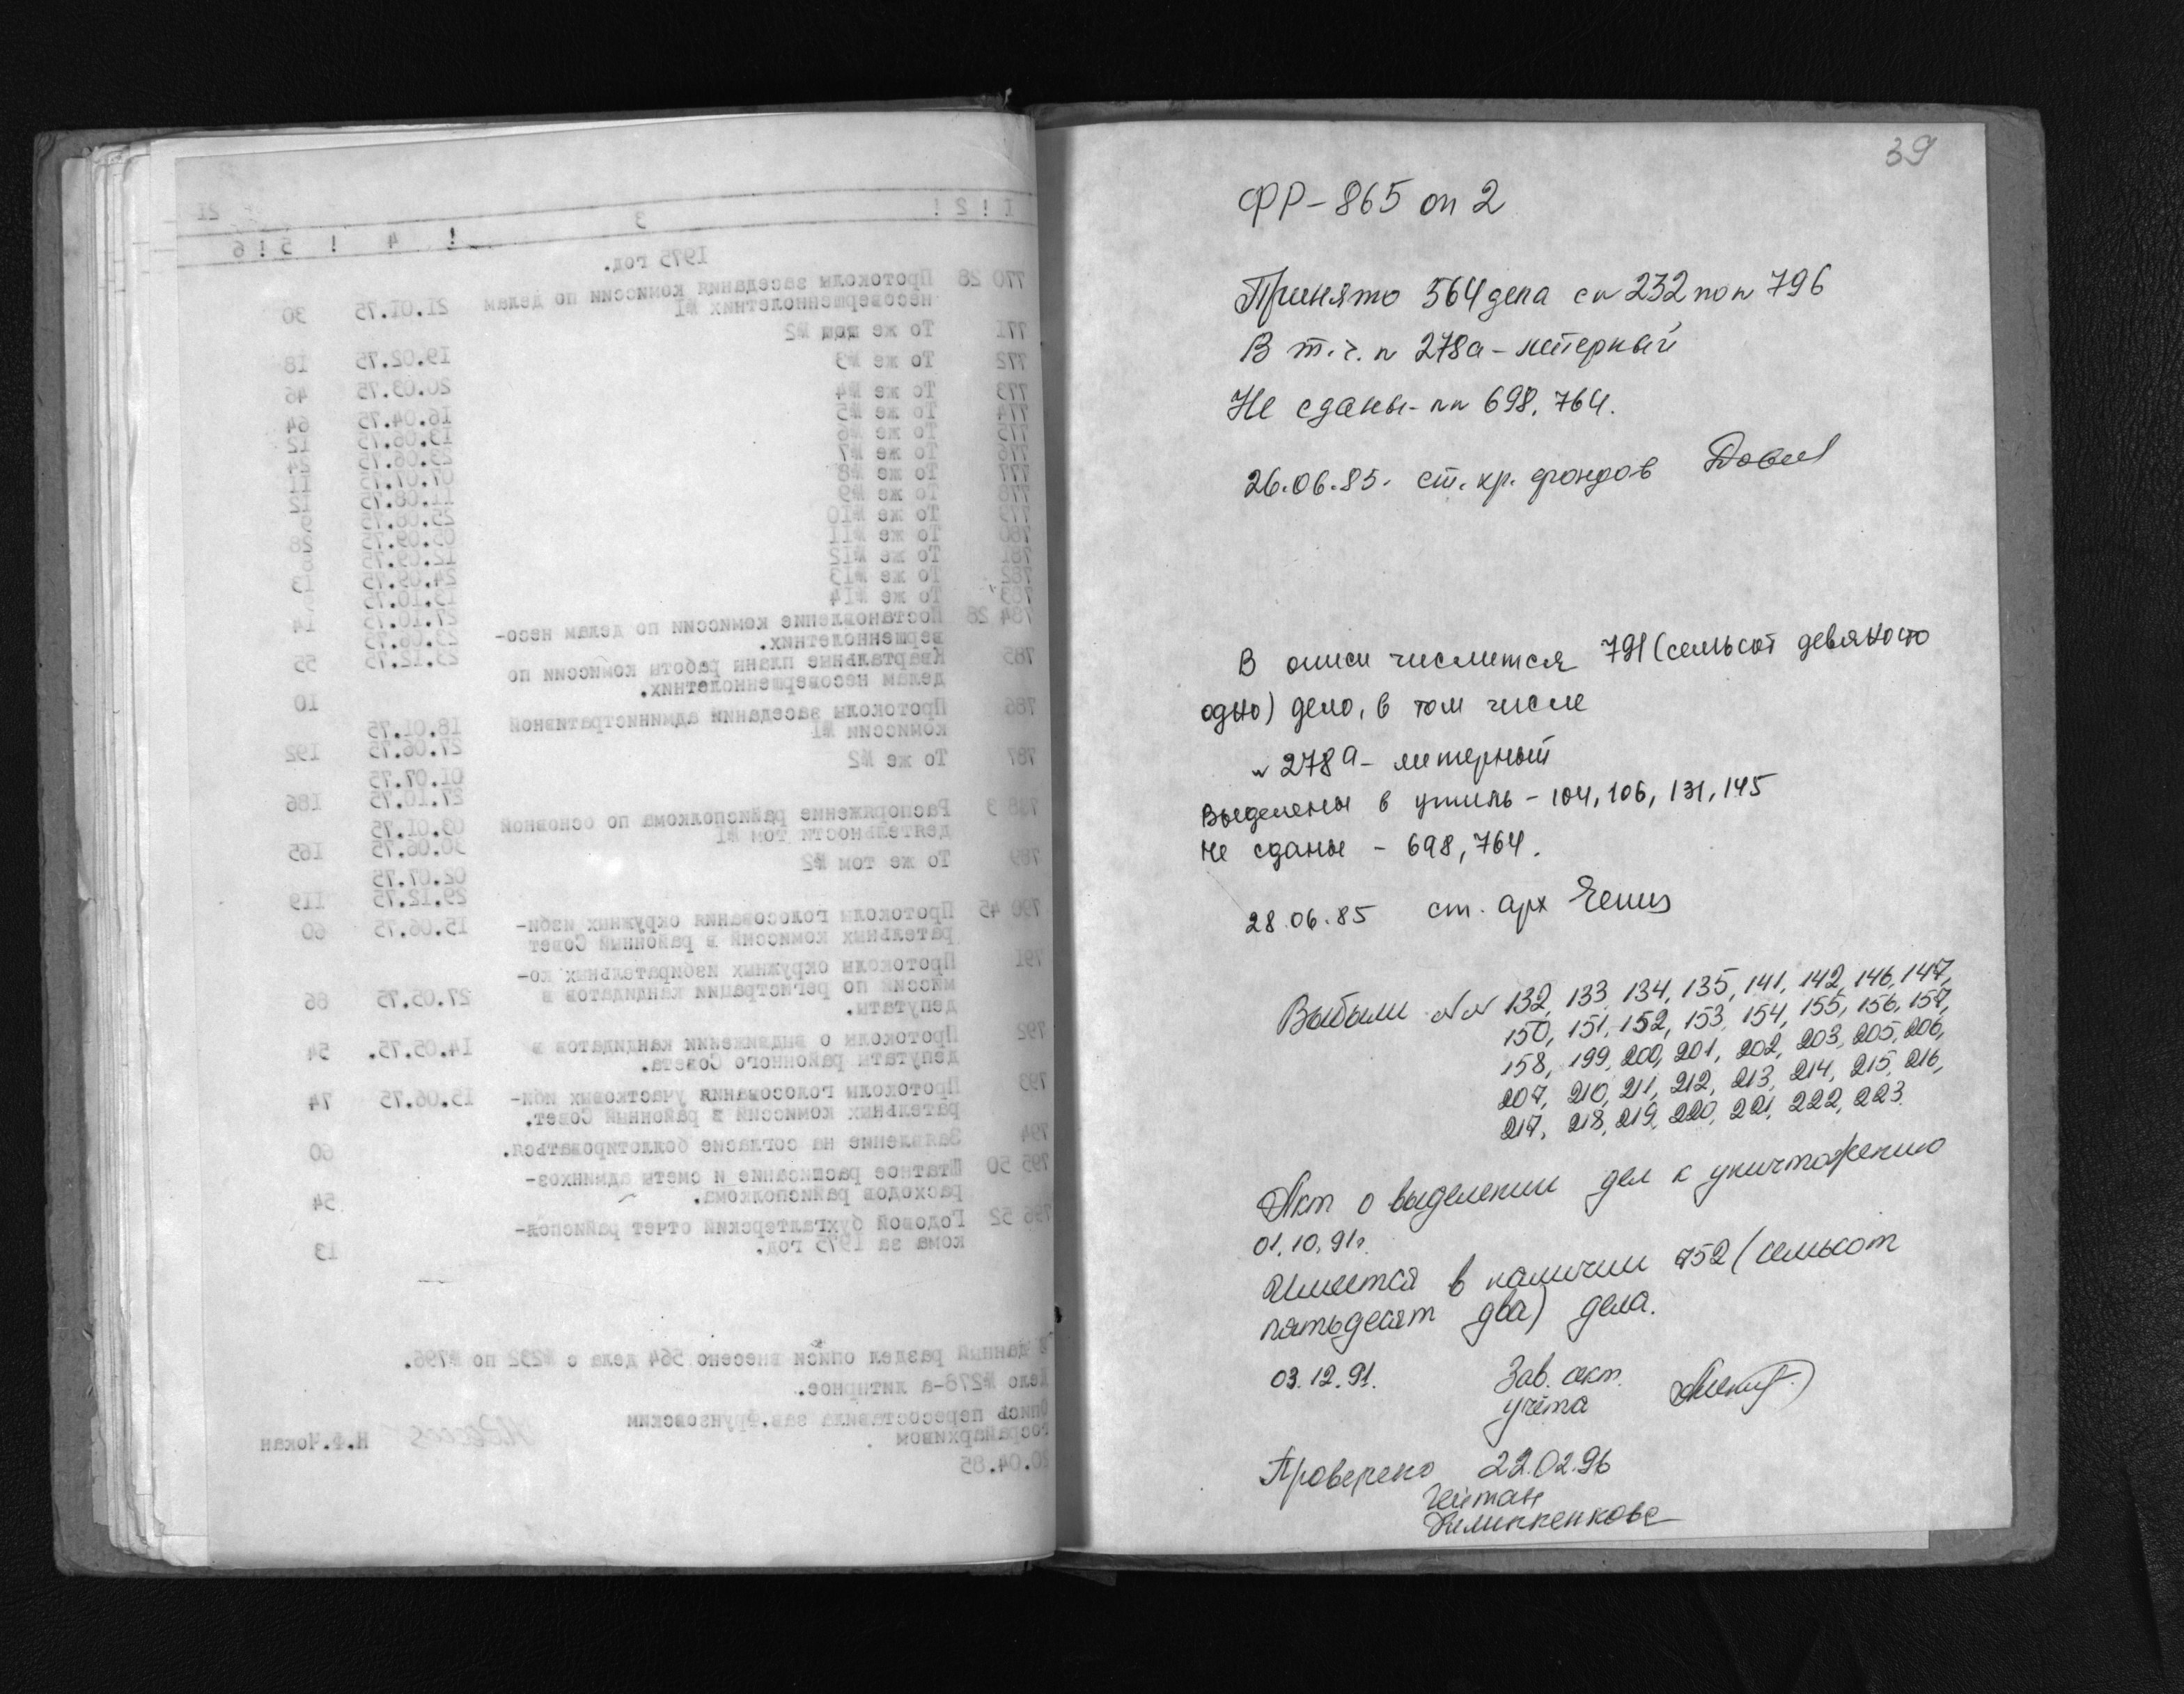 39
ФР-865 оп 2
Принято 564 дела с N 232 по N 796
В т.ч. N 278а - литерный
Не сданы - NN 698, 764.
26.06.85. ст. хр. фондов
В описи числится 791 (семьсот девяносто
одно) дело, в том числе
N 278а - литерный
Выделены в утиль - 104, 106, 131, 145
Не сданы - 698, 764.
28.06.85 ст. арх
Выбыли NN 132, 133, 134, 135, 141, 142, 146, 147,
150, 151, 152, 153, 154, 155, 156, 157,
158, 199, 200, 201, 202, 203, 205, 206,
207, 210, 211, 212, 213, 214, 215, 216,
217, 218, 219, 220, 221, 222, 223.
Акт о выделении дел к уничтожению
01.10.91г.
Имеется в наличии 752 (семьсот
пятьдесят два) дела.
03.12.91. Зав. сект.
учёта
Проверено 22.02.96
21
1 ! 2 ! 3 ! 4 ! 5 ! 6
1975 год.
770 28 Протоколы заседания комиссии по делам
несовершеннолетних №1 21.01.75 30
771 То же №2
772 То же №3 19.02.75 18
773 То же №4 20.03.75 46
774 То же №5 16.04.75 64
775 То же №6 13.06.75 12
776 То же №7 23.06.75 24
777 То же №8 07.07.75 11
778 То же №9 11.08.75 12
779 То же №10 25.08.75 9
780 То же №11 05.09.75 28
781 То же №12 12.09.75
782 То же №13 24.09.75 13
783 То же №14 13.10.75
27.10.75 14
784 28 Постановление комиссии по делам несо-
вершеннолетних. 23.06.75
23.12.75 55
785 Квартальные планы работы комиссии по
делам несовершеннолетних. 10
786 Протоколы заседаний административной
комиссии №1 18.01.75
27.06.75 192
787 То же №2
01.07.75
27.10.75 186
788 3 Распоряжение райисполкома по основной
деятельности том №1 03.01.75
30.06.75 165
789 То же том №2
02.07.75
29.12.75 119
790 45 Протоколы голосования окружных изби-
рательных комиссий в районный Совет 15.06.75 60
791 Протоколы окружных избирательных ко-
миссий по регистрации кандидатов в
депутаты. 27.05.75 86
792 Протоколы о выдвижении кандидатов в
депутаты районного Совета. 14.05.75. 54
793 Протоколы голосования участковых изби-
рательных комиссий в районный Совет. 15.06.75 74
794 Заявление на согласие боллотироваться. 60
795 50 Штатное расписание и сметы админхоз-
расходов райисполкома. 54
796 52 Годовой бухгалтерский отчет райиспол-
кома за 1975 год. 13
В данный раздел описи внесено 564 дела с №232 по №796.
Дело №278-а литирное.
Опись пересоставила зав.Фрунзовским
госрайархивом Н.Ф.Чокан
20.04.85